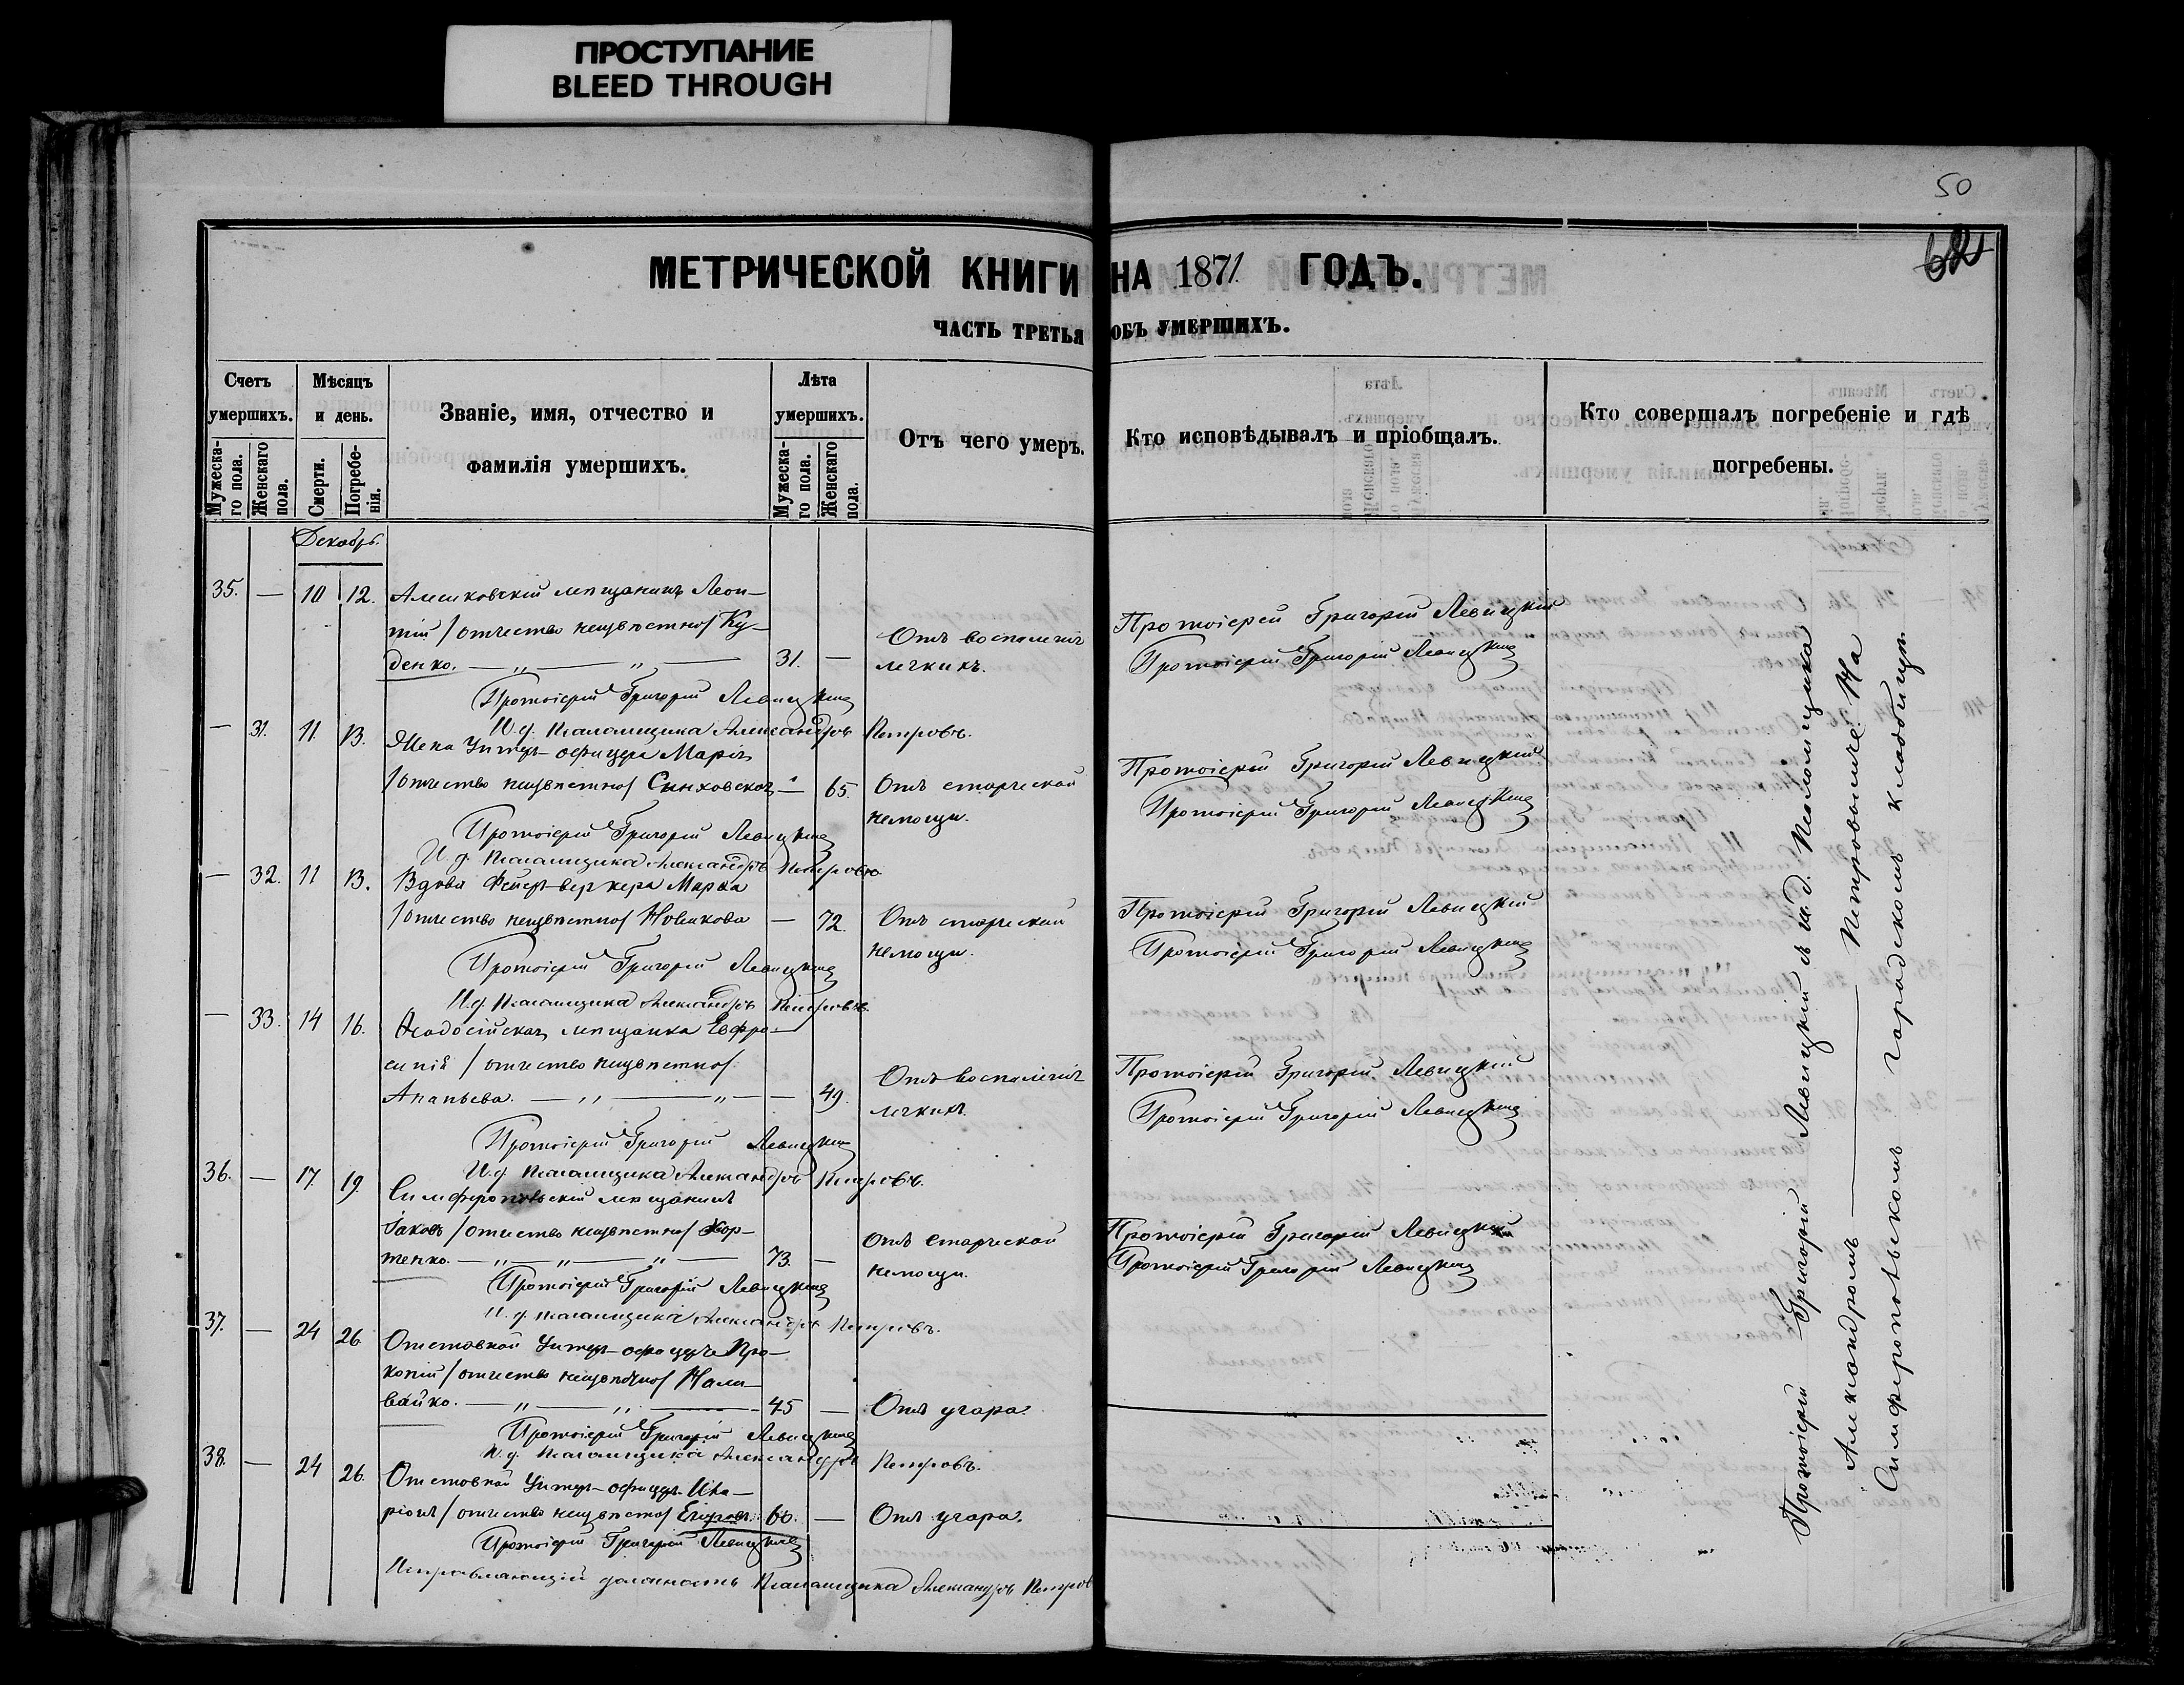 ПРОСТУПАНИЕ
BLEED THROUGH
50
62
МЕТРИЧЕСКОЙ КНИГИ НА 1871 ГОДЪ.
ЧАСТЬ ТРЕТЬЯ ОБЪ УМЕРШИХЪ.
Счетъ умершихъ.
Мужеска-го пола.
Женскаго пола.
Мѣсяцъ и день.
Смерти.
Погребе-нія.
Званіе, имя, отчество и
фамилія умершихъ.
Лѣта умершихъ.
Мужеска-го пола.
Женскаго пола.
Отъ чего умеръ.
Кто исповѣдывалъ и пріобщалъ.
Кто совершалъ погребеніе и гдѣ
погребены.
Декабрь.
35. — 10 12. Алешковскій мѣщанинъ Леон-
тій /отчество неизвѣстно/ Ку-
денко. — „ — „ — 31. — Отъ воспаленія
легкихъ.
Протоіерей Григорій Левицкій
Протоіерей Григорій Левицкій
Протоіерей Григорій Левицкій
И. д. Псаломщика Александръ Петровъ.
— 31. 11. 13. Жена Унтеръ-офицера Марія
/отчество неизвѣстно/ Сынховская — 65. Отъ старческой
немощи.
Протоіерей Григорій Левицкій
Протоіерей Григорій Левицкій
Протоіерей Григорій Левицкій
И. д. Псаломщика Александръ Петровъ.
— 32. 11 13. Вдова Фейерверкера Марѳа
/отчество неизвѣстно/ Новикова — 72. Отъ старческой
немощи.
Протоіерей Григорій Левицкій
Протоіерей Григорій Левицкій
Протоіерей Григорій Левицкій
И. д. Псаломщика Александръ Петровъ.
— 33. 14 16. Ѳеодосійская мѣщанка Евфро-
синія /отчество неизвѣстно/
Ананьева. — „ — „ — — 49. Отъ воспаленія
легкихъ.
Протоіерей Григорій Левицкій
Протоіерей Григорій Левицкій
Протоіерей Григорій Левицкій
И. д. Псаломщика Александръ Петровъ.
36. — 17. 19. Симферопольскій мѣщанинъ
Іаковъ /отчество неизвѣстно/ Хор-
тенко. — „ — „ — „ — 73. — Отъ старческой
немощи.
Протоіерей Григорій Левицкій
Протоіерей Григорій Левицкій
Протоіерей Григорій Левицкій
И. д. Псаломщика Александръ Петровъ.
37. — 24 26. Отставной Унтеръ-офицеръ Про-
копій /отчество неизвѣстно/ Нали-
вайко. — „ — „ — 45 — Отъ угара.
Протоіерей Григорій Левицкій
И. д. Псаломщика Александръ Петровъ.
38. — 24 26. Отставной Унтеръ-офицеръ
/отчество неизвѣстно/ Егоровъ. 60. — Отъ угара.
Протоіерей Григорій Левицкій
Исправляющій должность Псаломщика Александръ Петровъ
Протоіерей Григорій Левицкій съ и. д. Псаломщика
Александромъ — Петровымъ. На
Симферопольскомъ городскомъ кладбищѣ.